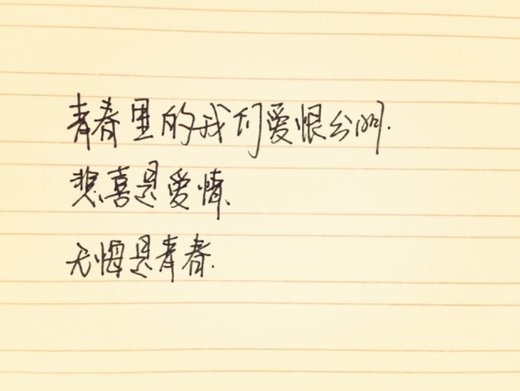 青春里的我们爱恨分明.
悲喜是爱情.
无悔是青春.